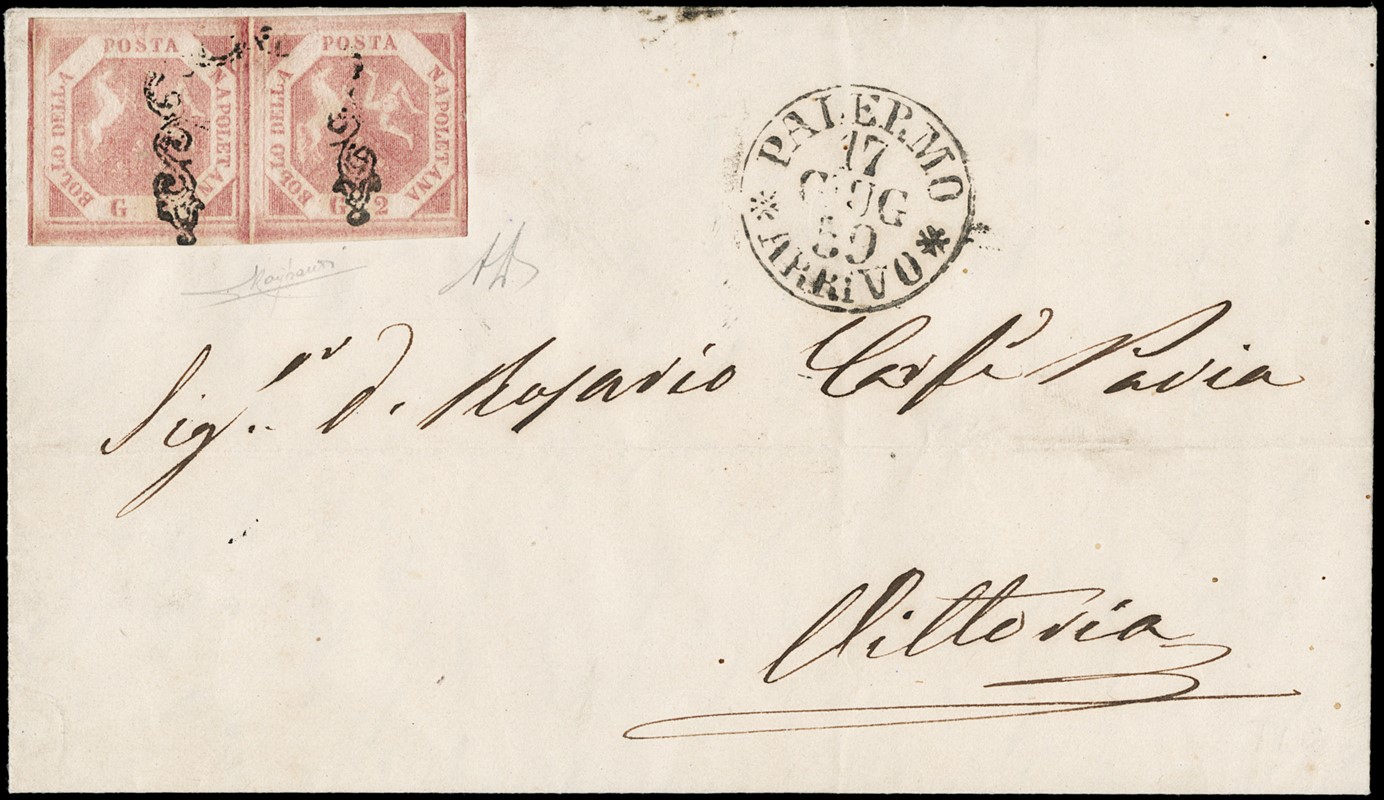 POSTA
BOLLO DELLA
NAPOLETANA
G
POSTA
BOLLO DELLA
NAPOLETANA
G 2
PALERMO
17
GIUG
59
ARRIVO
Sig.or d. Rosario Carfì Pavia
Vittoria